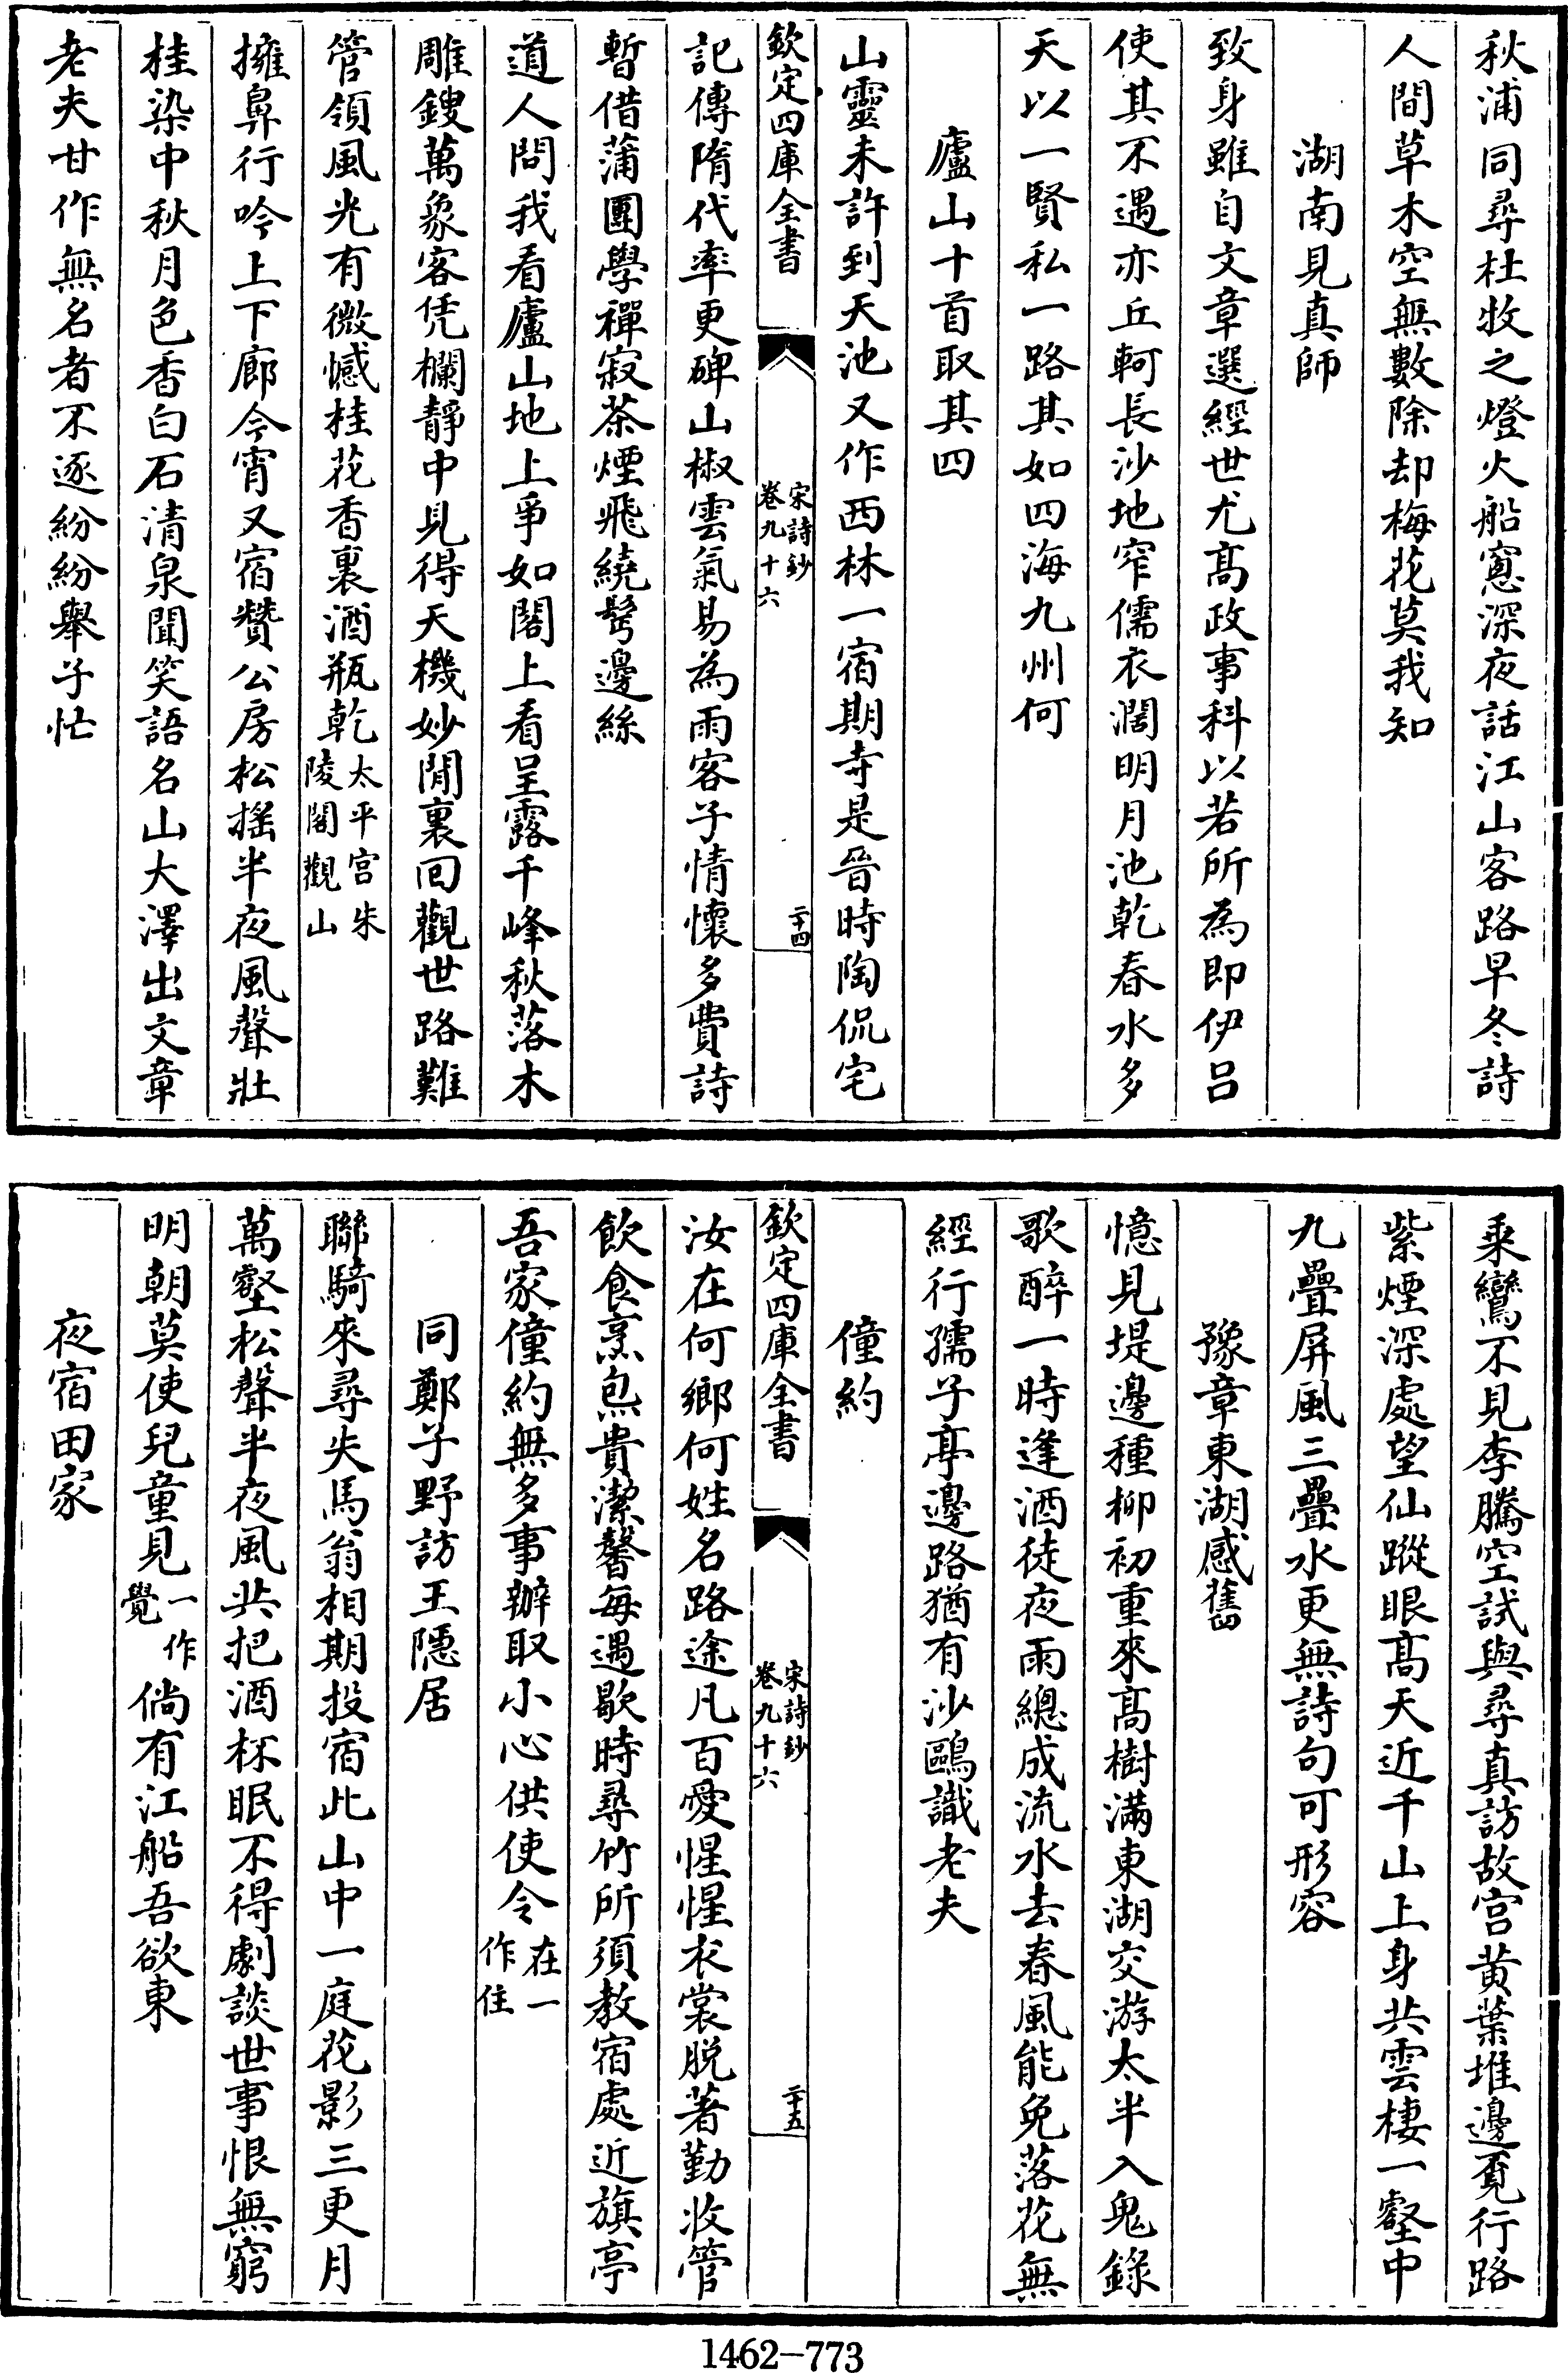 秋浦同尋杜牧之燈火船窻深夜話江山客路早冬詩
人間草木空無數除却梅花莫我知
湖南見真師
致身雖自文章選經世尤高政事科以若所為即伊呂
使其不遇亦丘軻長沙地窄儒衣濶明月池乾春水多
天以一賢私一路其如四海九州何
廬山十首取其四
山靈未許到天池又作西林一宿期寺是晉時陶侃宅
欽定四庫全書
宋詩鈔
卷九十六
二十四
記傳隋代率更碑山椒雲氣易為雨客子情懷多費詩
暫借蒲團學禪寂茶煙飛繞鬂邊絲
道人問我看廬山地上爭如閣上看呈露千峰秋落木
雕鎪萬象客凭欄靜中見得天機妙閒裏回觀世路難
管領風光有微憾桂花香裏酒瓶乾太平宫朱
陵閣觀山
擁鼻行吟上下廊今宵又宿贊公房松搖半夜風聲壯
桂染中秋月色香白石清泉聞笑語名山大澤出文章
老夫甘作無名者不逐紛紛舉子忙
乘鸞不見李騰空試與尋真訪故宫黄葉堆邊覓行路
紫煙深處望仙蹤眼高天近千山上身共雲棲一壑中
九疊屏風三疊水更無詩句可形容
豫章東湖感舊
憶見堤邊種柳初重來高樹滿東湖交游太半入鬼錄
歌醉一時逢酒徒夜雨總成流水去春風能免落花無
經行孺子亭邊路猶有沙鷗識老夫
僮約
欽定四庫全書
宋詩鈔
卷九十六
二十五
汝在何鄉何姓名路途凡百愛惺惺衣裳脱著勤收管
飲食烹炰貴潔馨每遇歇時尋竹所須教宿處近旗亭
吾家僮約無多事辦取小心供使令在一
作住
同鄭子野訪王隱居
聯騎來尋失馬翁相期投宿此山中一庭花影三更月
萬壑松聲半夜風共把酒杯眠不得劇談世事恨無窮
明朝莫使兒童見一作
覺倘有江船吾欲東
夜宿田家
1462-773